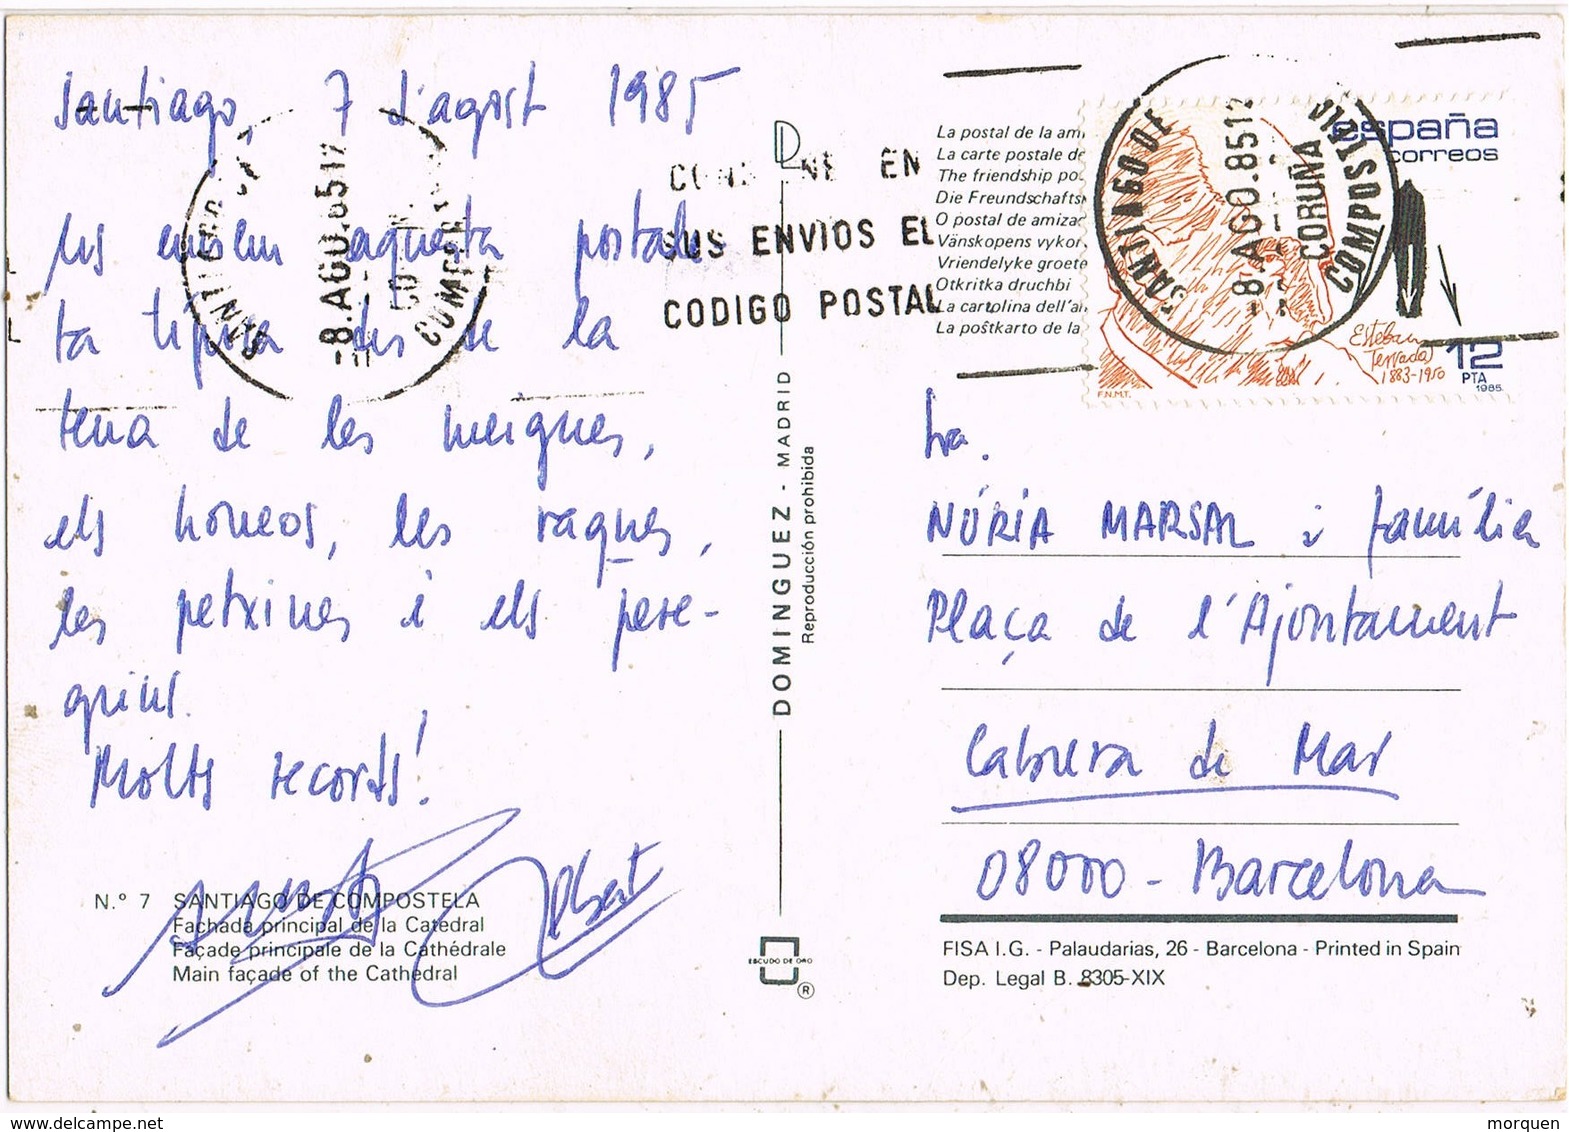 Santiago, 7 d'agost 1985
us enviem aquesta postale-
ta típica des de la
terra de les meigues,
els horreos, les vaques,
les petxines i els pere-
grins.
Molts records!
Albert
N.º 7 SANTIAGO DE COMPOSTELA
Fachada principal de la Catedral
Façade principale de la Cathédrale
Main façade of the Cathedral
SANTIAGO DE COMPOSTELA
-8.AGO.85 12
EN
SUS ENVIOS EL
CODIGO POSTAL
DOMINGUEZ - MADRID
Reproducción prohibida
ESCUDO DE ORO
®
La postal de la am
La carte postale de
The friendship po
Die Freundschafts
O postal de amiza
Vänskopens vykor
Vriendelyke groete
Otkritka druchbi
La cartolina dell'a
La poŝtkarto de la
SANTIAGO DE COMPOSTELA
CORUÑA
-8.AGO.85 12
españa
correos
Esteban
Terradas
1883-1950
12
PTA
1985.
F.N.M.T.
Sra.
NÚRIA MARSAL i família
Plaça de l'Ajontament
Cabrera de Mar
08000 - Barcelona
FISA I.G. - Palaudarias, 26 - Barcelona - Printed in Spain
Dep. Legal B. 8305-XIX
morquen